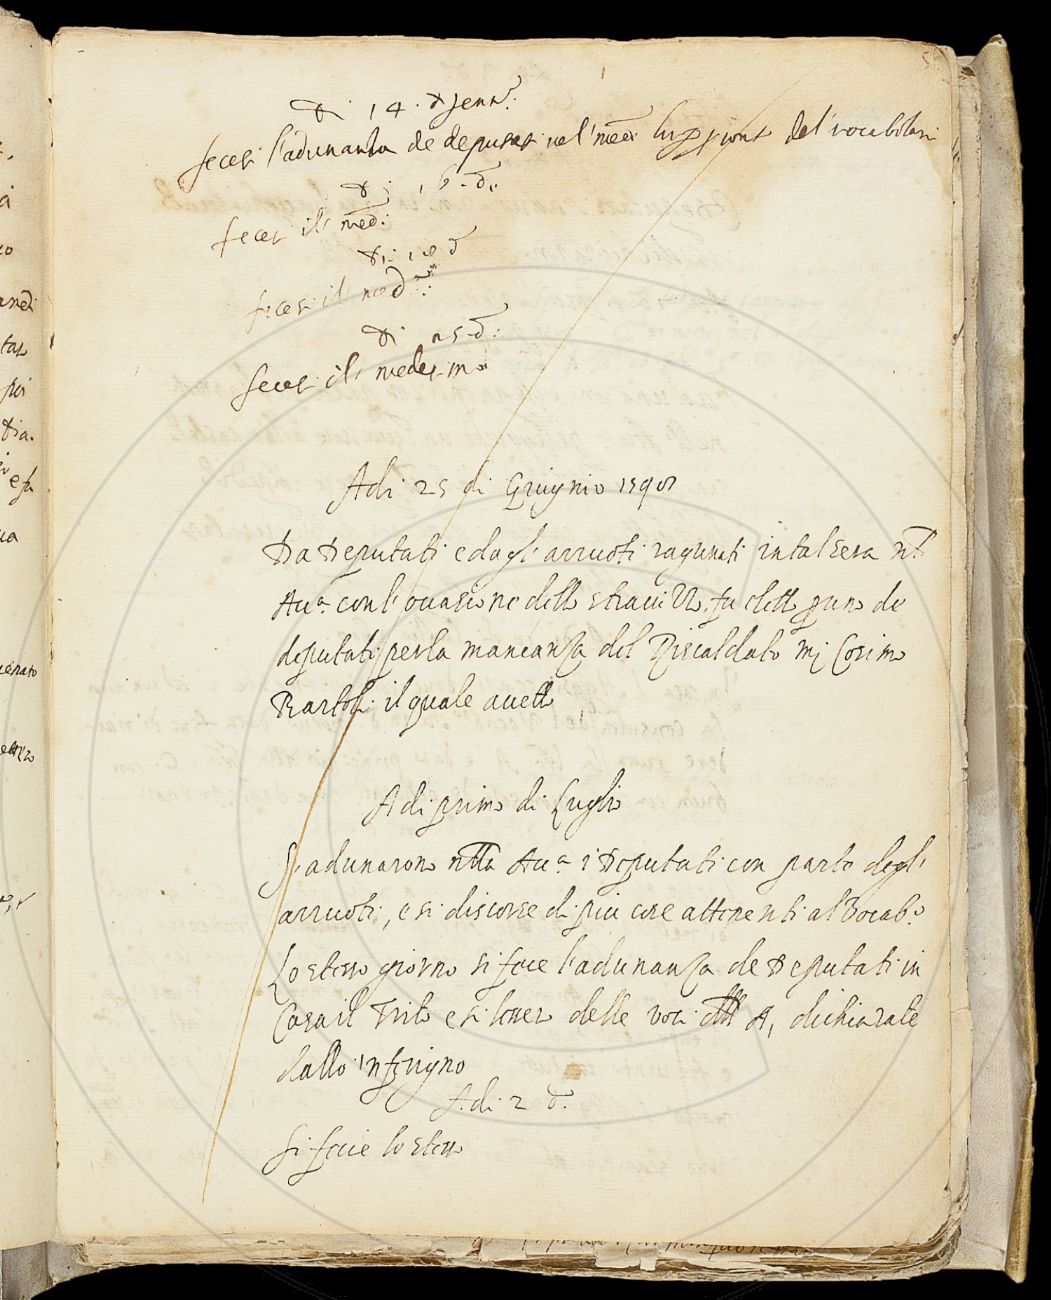 Di 14. d Jenn.:
Feceśi l'adunanza de deputati nel med. luogo del vocabolari
Di 16. d.
Feceśi il med.:
Di 18 d
feceśi il med.:
Di 25 d.:
Feceśi il medesimo
Adi 25 di Giugnio 1591
Da Deputati e dagl'arruoti ragunati in tal sera nell
Acc.a con l'ovasione dello stravizzo, fu eletto p uno de
deputati per la mancanza del Riscaldato m. Cosimo
Bartoli il quale accettò
Adi primo di Luglio
S'adunarono nella Acc.a i Deputati con parte degl'
arruoti, e si discorse di piu cose attenenti al Vocab.o
Lo stesso giorno si fece l'adunanza de Deputati in
Casa il Trito e si lesser delle voci dell A, dichiarate
dallo 'nferigno
Adi 2 d.
Si fecie lo stesso